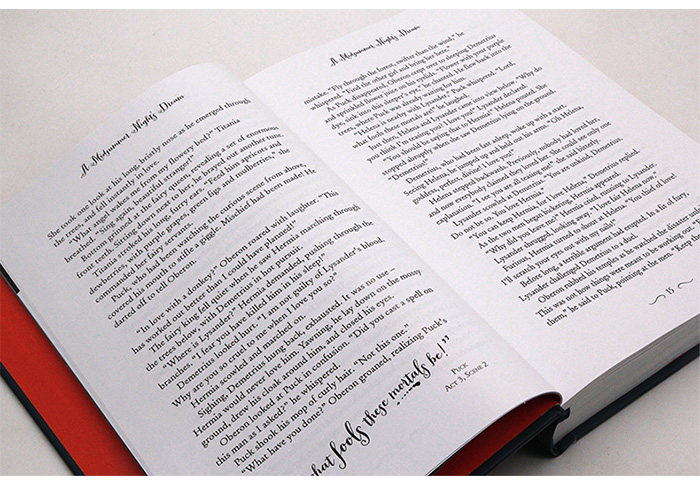 A Midsummer Night's Dream
She took one look at his long, bristly nose as he emerged through
the trees, and fell instantly in love.
"What angel wakes me from my flowery bed?" Titania
breathed. "Sing again, beautiful stranger!"
Bottom grinned at the fairy queen, revealing a set of enormous
front teeth. Sitting down next to her, he brayed out another tune.
Titania stroked his long, furry ears. "Feed him apricots and
dewberries, with purple grapes, green figs and mulberries," she
commanded her fairy servants.
Puck, who had been watching the curious scene from above,
covered his mouth to stifle a giggle. Mischief had been made! He
darted off to tell Oberon.
"In love with a donkey?" Oberon roared with laughter. "This
has worked out better than I could have planned!"
The fairy king fell quiet when he saw Hermia marching through
the trees below, with Demetrius in her pursuit.
"Where is Lysander?" Hermia demanded, pushing through the
branches. "I fear you have killed him in his sleep!"
Demetrius looked hurt. "I am not guilty of Lysander's blood.
Why are you so cruel to me when I love you so?"
Hermia scowled and marched on.
Sighing, Demetrius hung back, exhausted. It was no use –
Hermia would never love him. Yawning, he lay down on the mossy
ground, drew his cloak around him and closed his eyes.
Oberon looked at Puck in confusion. "Did you cast a spell on
this man as I asked?" he whispered.
Puck shook his mop of curly hair. "Not this one."
"What have you done?" Oberon groaned, realizing Puck's
what fools these mortals be!"
Puck
Act 3, Scene 2
A Midsummer Night's Dream
mistake. "Fly through the forest, swifter than the wind," he
whispered. "Find the other girl and bring her here."
As Puck disappeared, Oberon crept over to sleeping Demetrius
and sprinkled flower juice on his eyelids. "Flower with your purple
dye, sink into the depths of his eye," he chanted. He flew back into the
trees, where Puck was already waiting for him.
"Helena is nearby with Lysander," Puck whispered. "Lord,
what fools these mortals are!" he laughed.
Just then, Helena and Lysander came into view below. "Why do
you think I'm teasing you? I love you!" Lysander declared.
"You should be saying that to Hermia!" Helena replied. She
stopped abruptly when she saw Demetrius lying on the ground.
"Demetrius!"
Demetrius, who had been fast asleep, woke up with a start.
Seeing Helena, he jumped up and held out his arms. "Oh Helena,
goddess, perfect, divine! I love you!"
Helena stepped backwards. Previously, nobody had loved her,
and now everybody claimed they loved her. She could see only one
explanation. "I see you are all teasing me!" she said bitterly.
"Do not be so. You love Hermia."
"As you can keep Hermia, for I love Helena," Demetrius replied.
As the two men began fighting, Hermia appeared.
"Why did you leave me?" Hermia cried, running to Lysander.
Lysander shrugged, looking away. "I love Helena now."
Furious, Hermia turned to shout at Helena. "You thief of love!
I'll scratch your eyes out with my nails!"
Before long, a terrible argument had erupted. In a fit of fury,
Lysander challenged Demetrius to a duel.
Oberon rubbed his temples as he watched the disaster unfold.
This was not how things were meant to be working out. "Separate
them," he said to Puck, pointing at the men. "Keep them
15